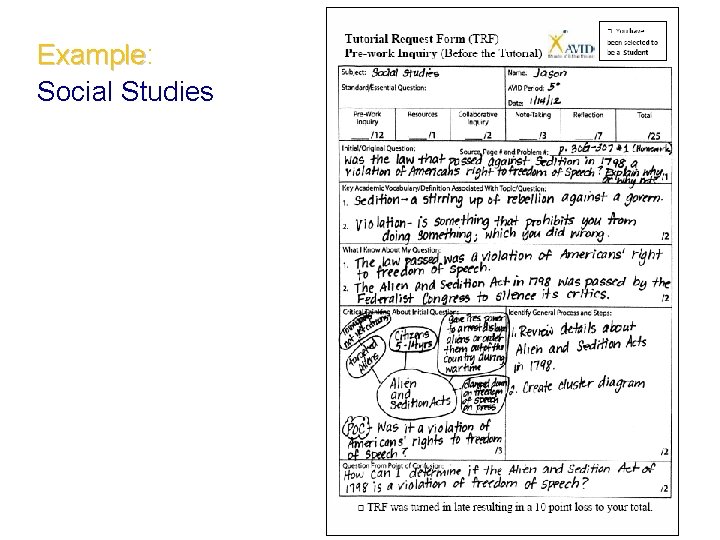 Example:
Social Studies
Tutorial Request Form (TRF)
Pre-work Inquiry (Before the Tutorial)
AVID
□ You have
been selected to
be a Student
Subject: Social Studies
Name: Jason
Standard/Essential Question:
AVID Period: 5°
Date: 1/14/12
Pre-Work Inquiry
Resources
Collaborative Inquiry
Note-Taking
Reflection
Total
/12 /1 /2 /3 /7 /25
Initial/Original Question: Source, Page # and Problem #: p. 306-307 #1 (Homework)
Was the law that passed against Sedition in 1798, a
violation of Americans right to freedom of Speech? Explain why
or why not. /1
Key Academic Vocabulary/Definition Associated With Topic/Question:
1. Sedition - a stirring up of rebellion against a govern.
2. Violation - is something that prohibits you from
doing something; which you did wrong. /2
What I Know About My Question:
1. The law passed was a violation of Americans' right
to freedom of speech.
2. The Alien and Sedition Act in 1798 was passed by the
Federalist Congress to silence its critics. /2
Critical Thinking About Initial Question:
Citizens
5-14yrs
gave Pres. power
to arrest
aliens or order
them out of the
country during
wartime
targeted
Aliens
Alien
and
Sedition Acts
clamped down
on freedom
of speech
on press
POC - Was it a violation of
Americans' rights to freedom
of speech? /3
Identify General Process and Steps:
1. Review details about
Alien and Sedition Acts
in 1798.
2. Create cluster diagram
/2
Question From Point of Confusion:
How can I determine if the Alien and Sedition Act of
1798 is a violation of freedom of speech? /2
□ TRF was turned in late resulting in a 10 point loss to your total.